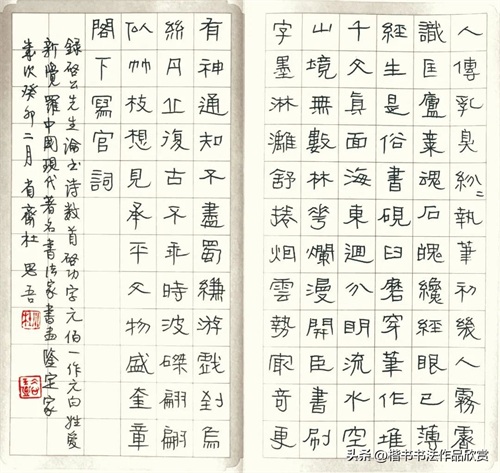 人傳乳臭紛〻執筆初幾人霧霽
識匡廬棄魂石魄纔經眼已薄
經生是俗書硯臼磨穿筆作堆
千文真面海東迴分明流水空
山境無數林花爛漫開臣書刷
字墨淋灕舒捲烟雲勢最奇更
有神通知不盡蜀縑游戲到烏
絲丹止復古不乖時波磔翩翩
似竹枝想見承平文物盛奎章
閣下寫官詞
錄啓公先生論書詩數首啓功字元伯一作元白姓愛
新覺羅中國現代著名書法家書畫鑒定家
歲次癸卯二月省齋杜思吾
头条@楷书书法作品欣赏